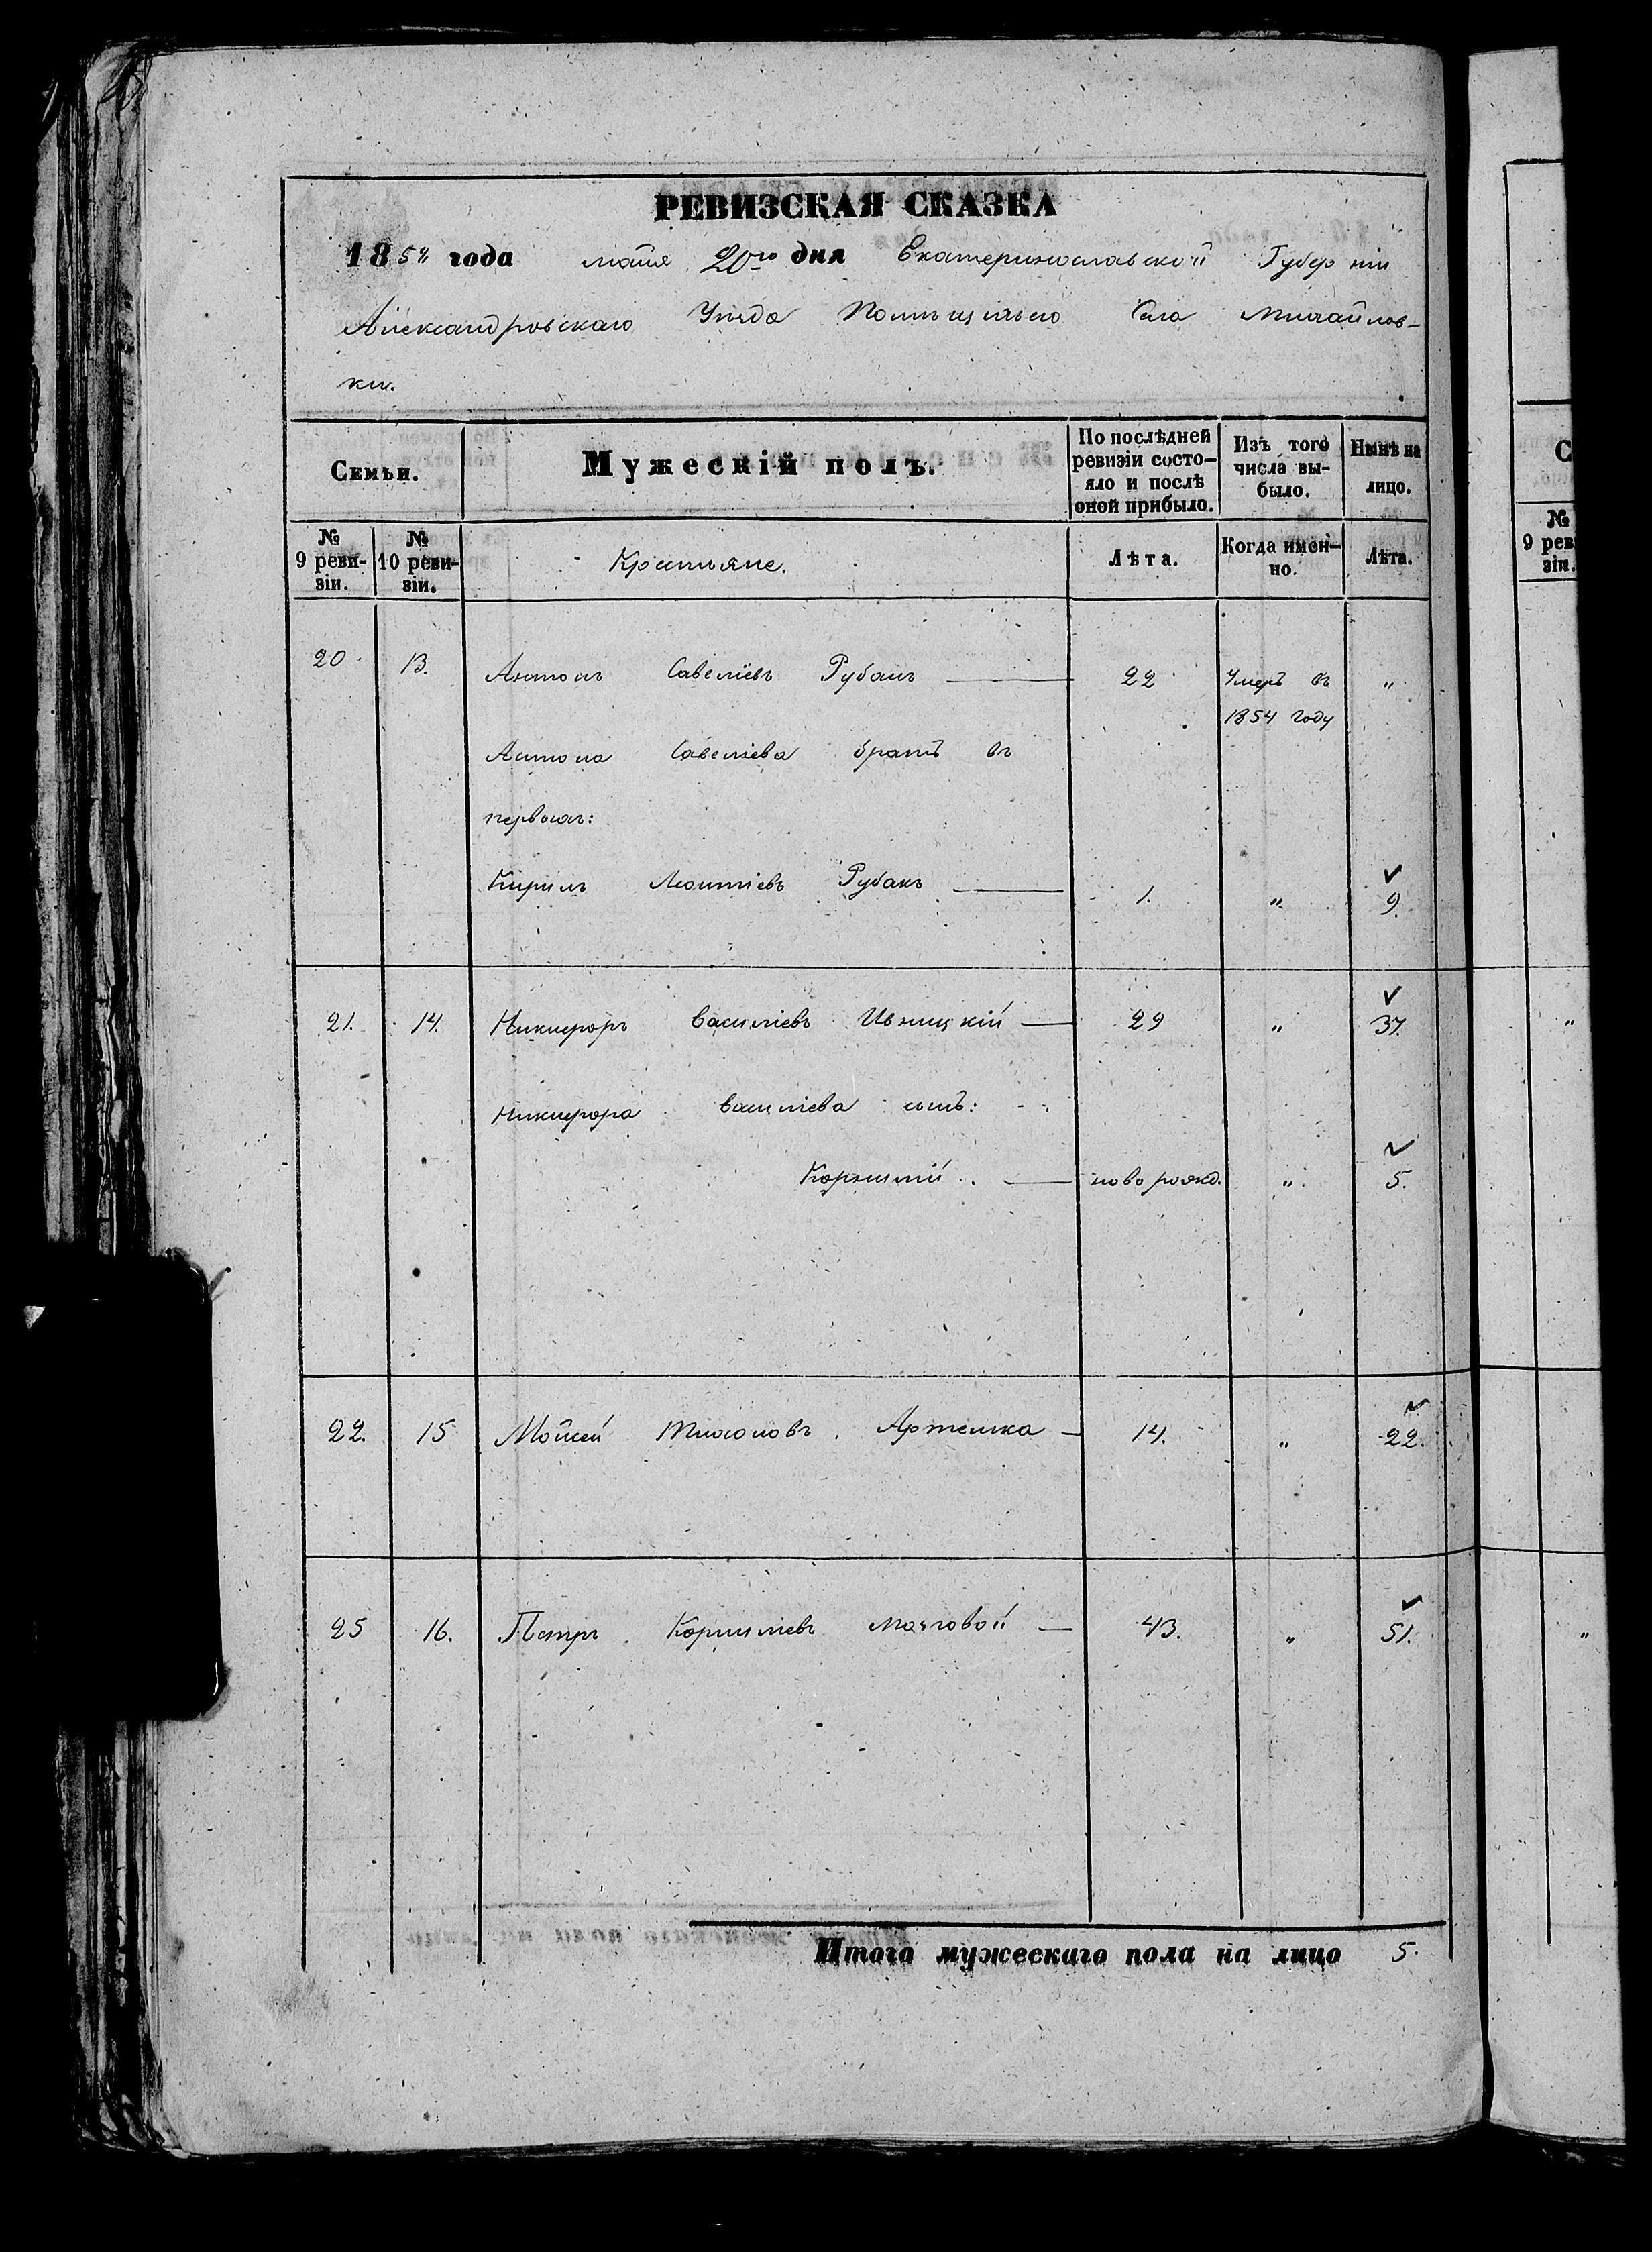 РЕВИЗСКАЯ СКАЗКА
1858 года маія 20го дня Екатеринославской Губерніи
Александровскаго Уѣзда Села Михайлов-
ки.
Семьи.
Мужескій полъ.
По послѣдней ревизіи состо-яло и послѣ оной прибыло.
Изъ того числа вы-было.
Нынѣ на лицо.
№ 9 реви-зіи.
№ 10 реви-зіи.
Крестьяне.
Лѣта.
Когда имен-но.
Лѣта.
20 13. Антонъ Савеліевъ Рубанъ 22 Умеръ въ "
1854 году
Антона Савеліева братъ въ
первыхъ:
Кирилъ Леонтіевъ Рубанъ 1. " 9.
21. 14. Никифоръ Василіевъ Ивницкій 29 " 37.
Никифора Василіева сынъ:
Корнилій новорожд. " 5.
22. 15 Мойсей Артемка 14. " 22.
25 16. Петръ Корниліевъ Мозговой 43. " 51.
Итого мужескаго пола на лицо 5.
С
№
9 рев
зіи.
"
"